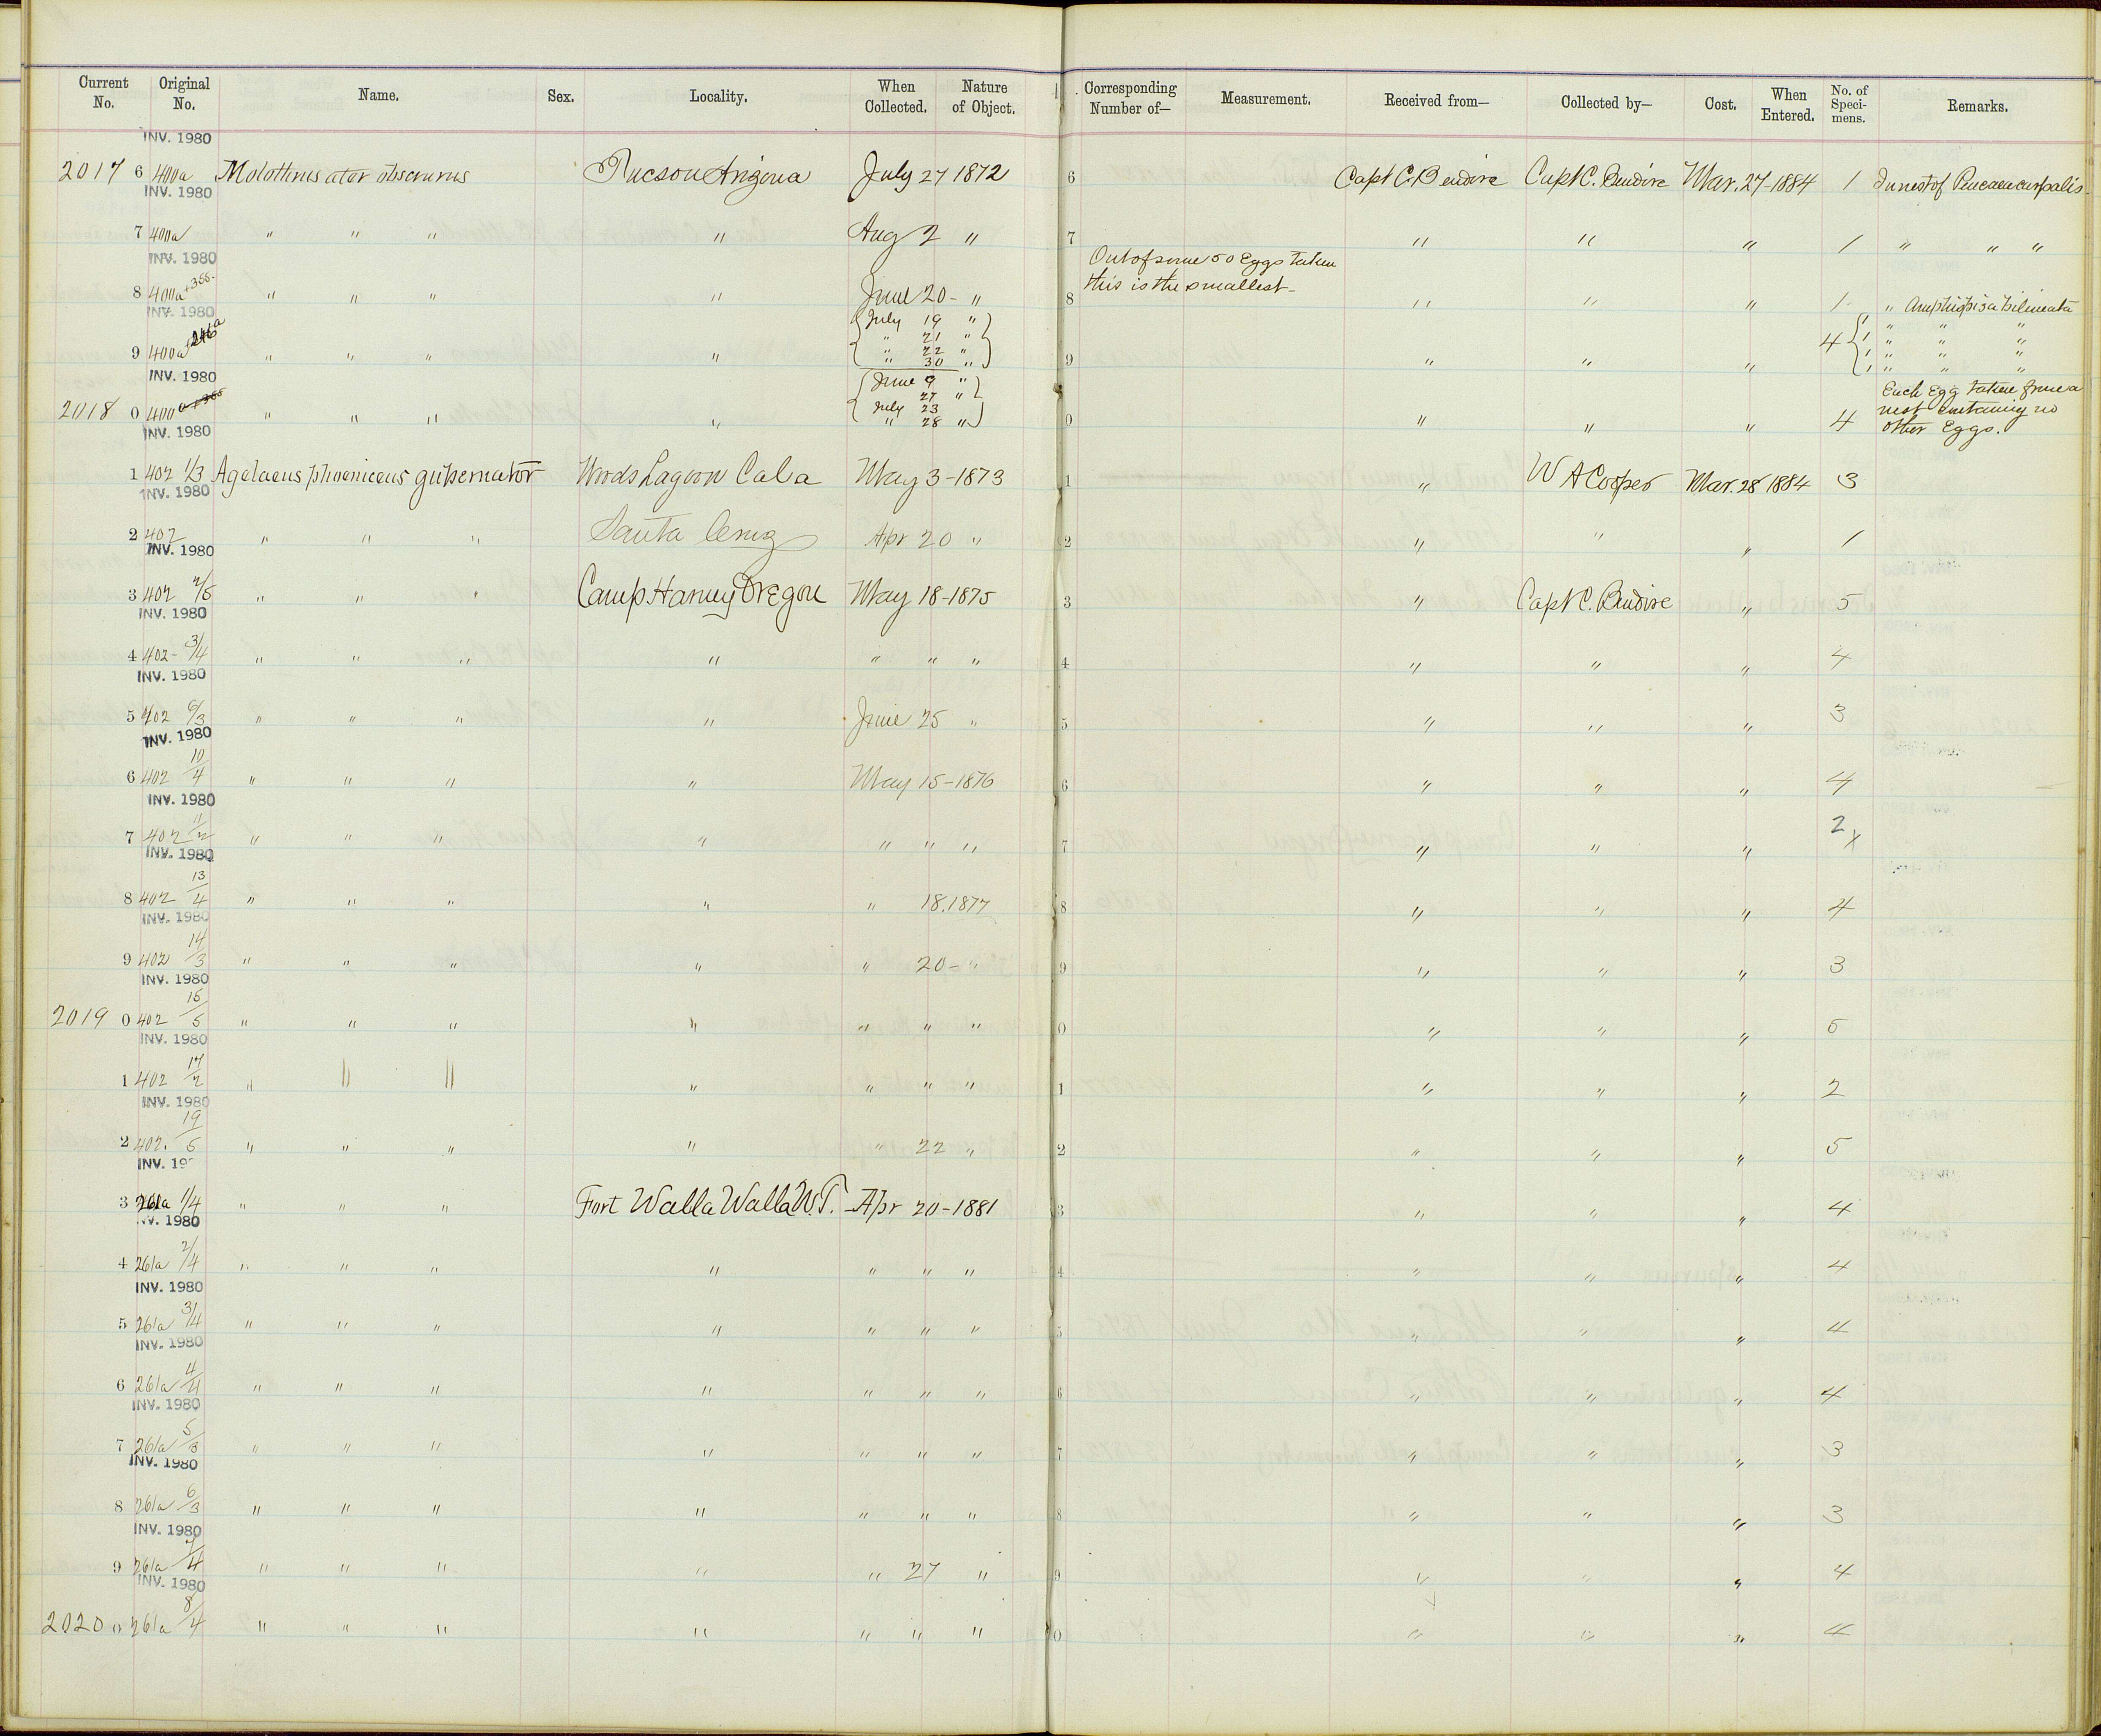 Current No. Original No. Name. Sex. Locality. When Collected. Nature of Object. Corresponding Number of— Measurement. Received from— Collected by— Cost. When Entered. No. of Speci-mens. Remarks.
INV. 1980
2017 6 400a Molothrus ater obscurus Tucson Arizona July 27 1872 6 Capt C. Bendire Capt C. Bendire Mar. 27-1884 1 In nest of Peucaea carpalis
INV. 1980
7 400a " " " " Aug 2 " 7 " " " 1 " " "
INV. 1980
Out of some 50 Eggs taken
this is the smallest-
8 400a +355- " " " " June 20- " 8 " " " 1 " Amphispiza bilineata
INV. 1980
9 400a " " " " { July 19 " } 9 " " " 4 { 1 " " "
" 21 " 1 " " "
" 22 " 1 " " "
" 30 " 1 " " "
INV. 1980
2018 0 400a " " " " { June 9 " } 0 " " " 4 Each Egg taken from a
27 " nest containing no
July 23 other Eggs.
" 28 "
INV. 1980
1 402 1/3 Agelaeus phoeniceus gubernator Woods Lagoon Cala May 3-1873 1 " W A Cooper Mar. 28 1884 3
INV. 1980
2 402 " " " Santa Cruz Apr 20 " 2 " " " 1
INV. 1980
3 402 2/5 " " " Camp Harney Oregon May 18-1875 3 " Capt C. Bendire " 5
INV. 1980
4 402- 3/4 " " " " " " " 4 " " " 4
INV. 1980
5 402 6/3 " " " " June 25 " 5 " " " 3
INV. 1980
6 402 10/4 " " " " May 15-1876 6 " " " 4
INV. 1980
7 402 11/2 " " " " " " " 7 " " " 2 x
INV. 1980
8 402 13/4 " " " " " 18.1877 8 " " " 4
INV. 1980
9 402 14/3 " " " " " 20- " 9 " " " 3
INV. 1980
2019 0 402 15/5 " " " " " " " 0 " " " 5
INV. 1980
1 402 17/2 " " " " " " " 1 " " " 2
INV. 1980
2 402. 19/5 " " " " " 22 " 2 " " " 5
INV. 19
3 261a 1/4 " " " Fort Walla Walla W.T. Apr 20-1881 3 " " " 4
INV. 1980
4 261a 2/4 " " " " " " " 4 " " " 4
INV. 1980
5 261a 3/4 " " " " " " " 5 " " " 4
INV. 1980
6 261a 4/4 " " " " " " " 6 " " " 4
INV. 1980
7 261a 5/3 " " " " " " " 7 " " " 3
INV. 1980
8 261a 6/3 " " " " " " " 8 " " " 3
INV. 1980
9 261a 7/4 " " " " " 27 " 9 " " " 4
INV. 1980
2020 0 261a 8/4 " " " " " " " 0 " " " 4